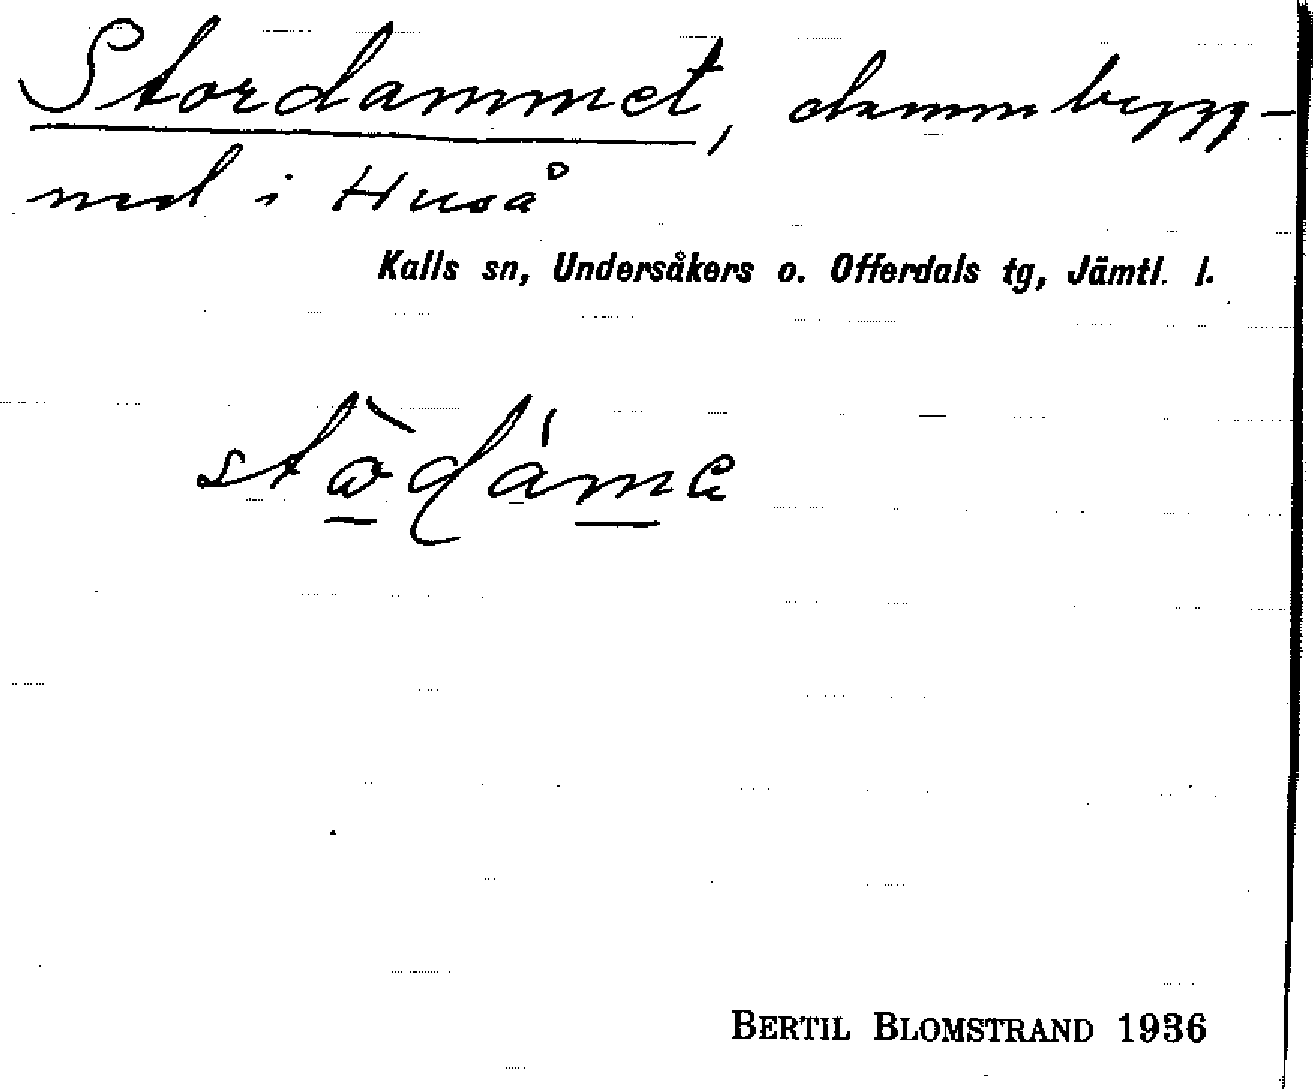 Stordammet, dammbygg-
nad i Huså
Kalls sn, Undersåkers o. Offerdals tg, Jämtl. l.
BERTIL BLOMSTRAND 1936